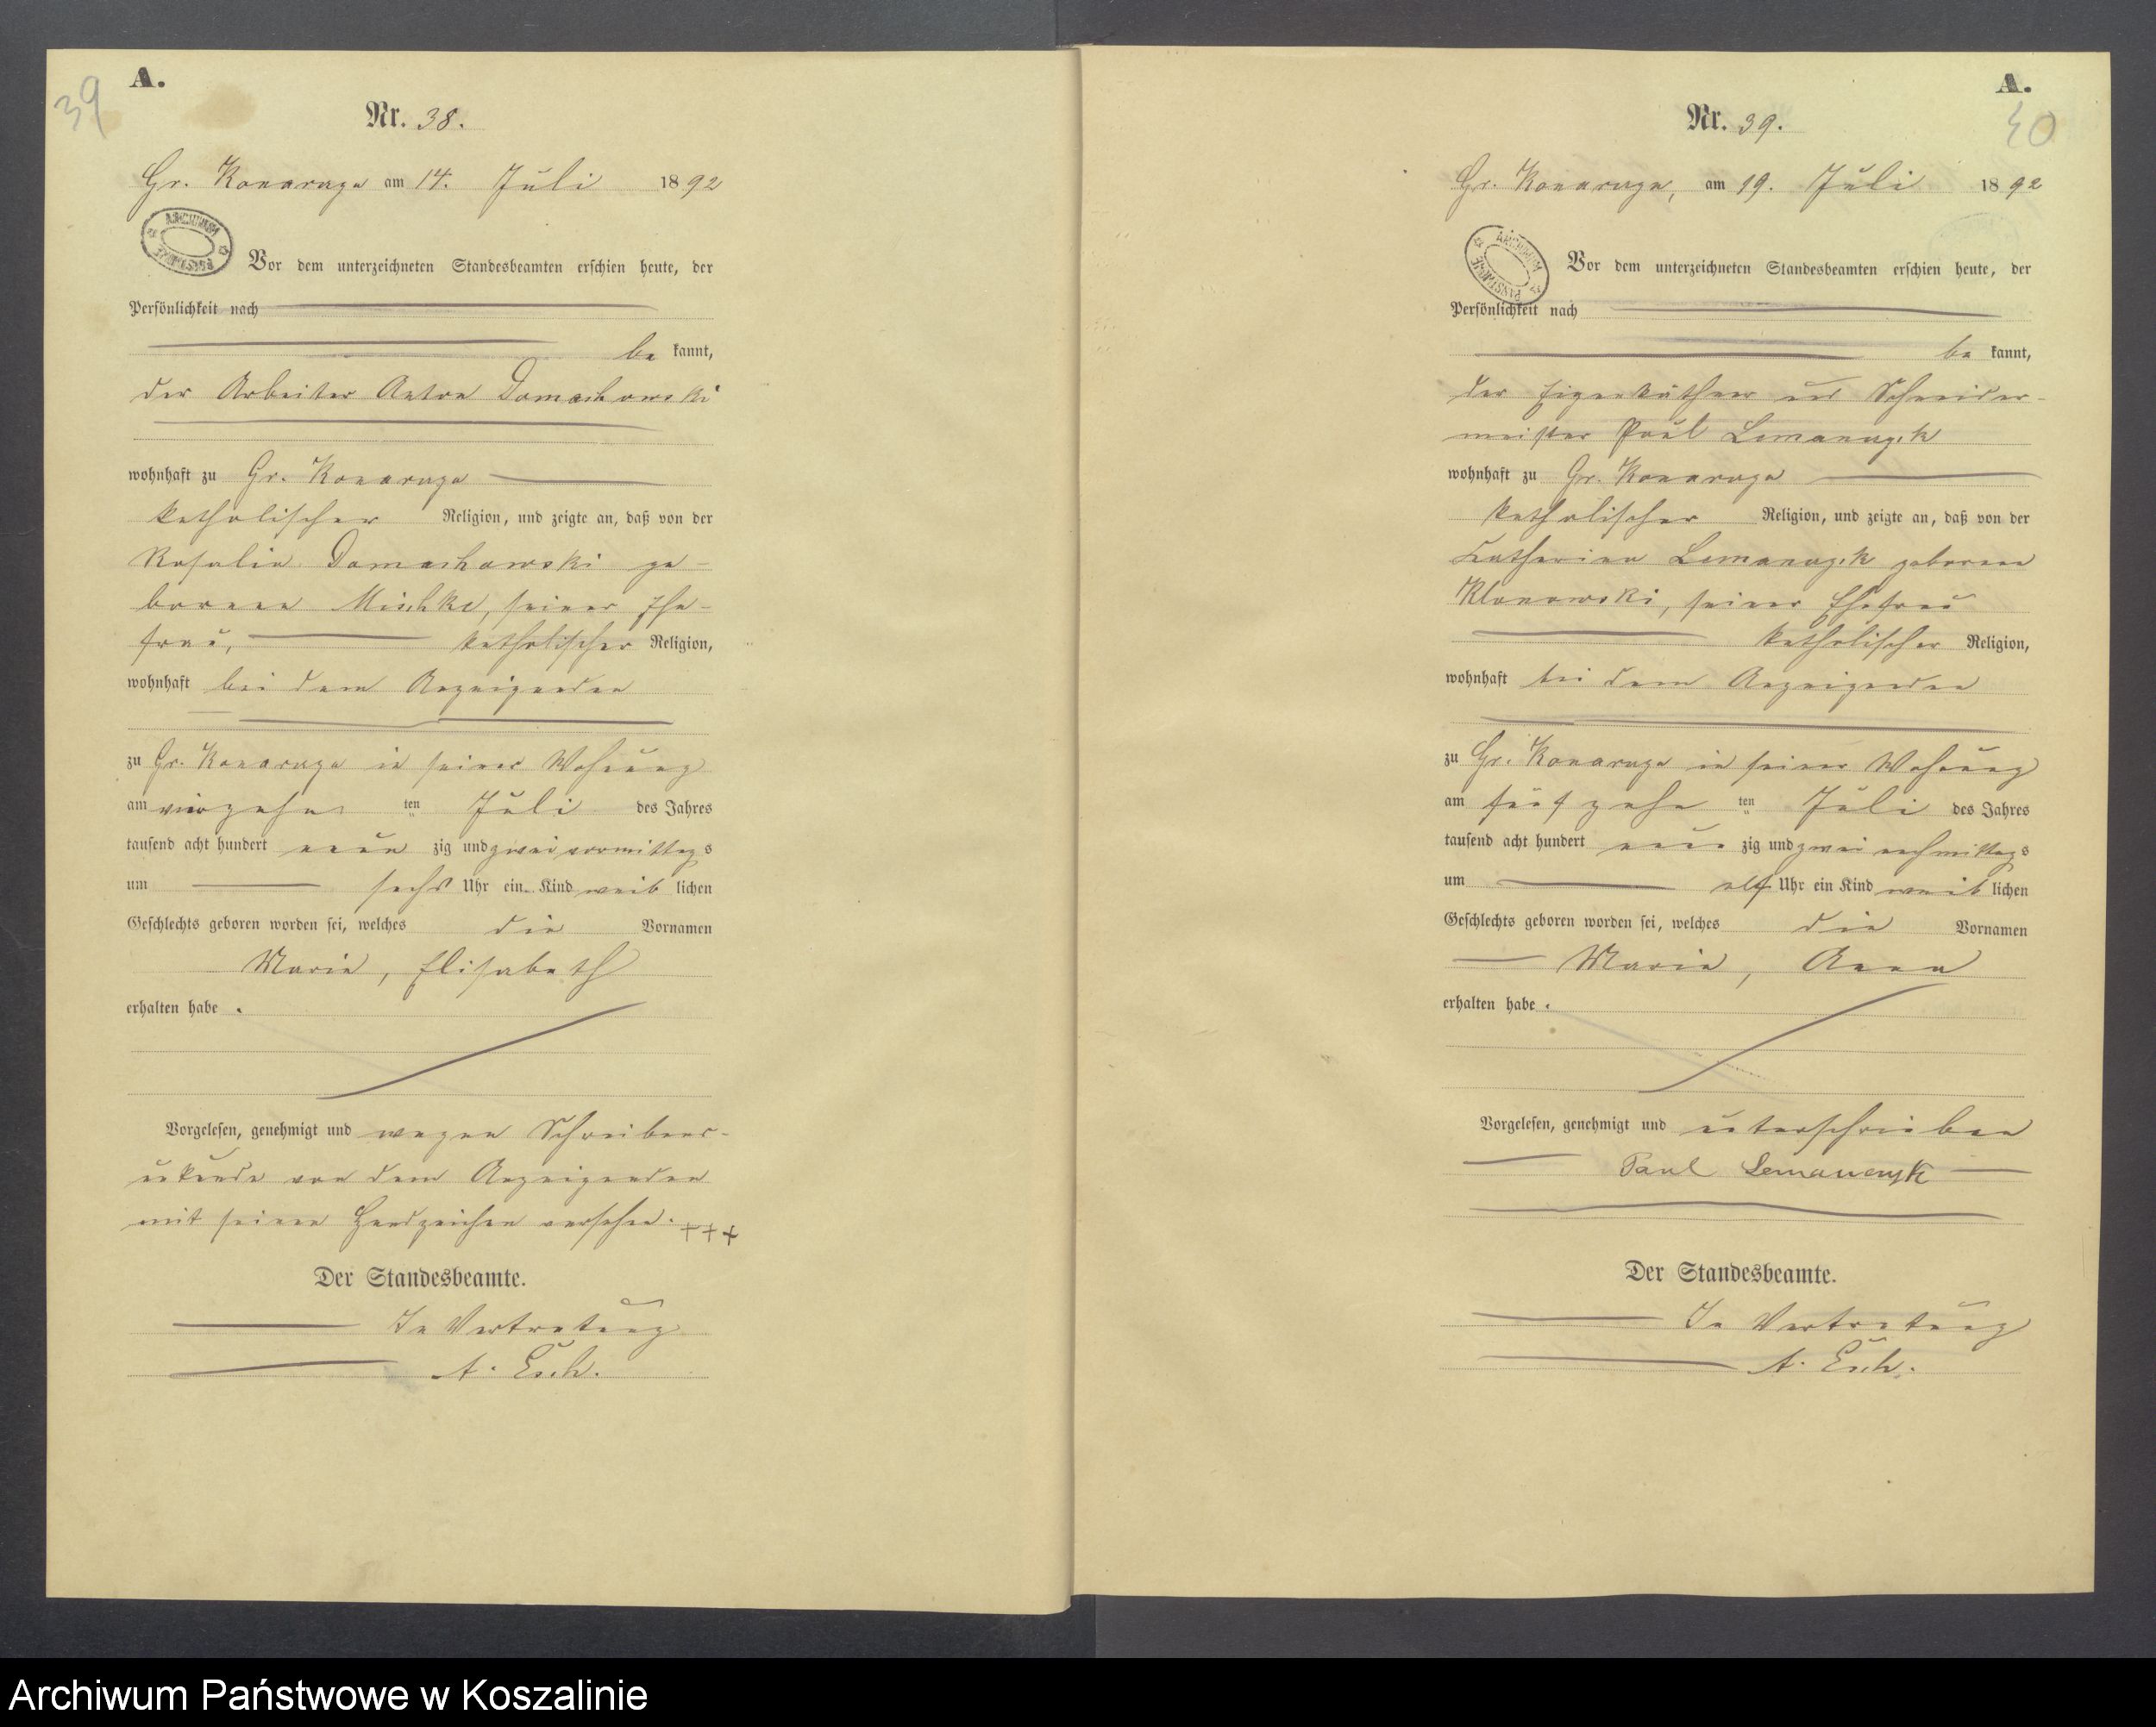 39
A.
Nr. 38.
Gr. Konarzyn am 14. Juli 1892
ARCHIWUM PAŃSTWOWE
Vor dem unterzeichneten Standesbeamten erschien heute, der
Persönlichkeit nach
be kannt,
der Arbeiter Anton Domachowski
wohnhaft zu Gr. Konarzyn
katholischer Religion, und zeigte an, daß von der
Rosalie Domachowski ge-
borene Mischke, seiner Ehe-
frau, katholischer Religion,
wohnhaft bei dem Anzeigenden
zu Gr. Konarzyn in seiner Wohnung
am vierzehn ten Juli des Jahres
tausend acht hundert neun zig und zwei vormittags
um sechs Uhr ein Kind weib lichen
Geschlechts geboren worden sei, welches die Vornamen
Maria, Elisabeth
erhalten habe.
Vorgelesen, genehmigt und wegen Schreibens-
unkunde von dem Anzeigenden
mit seinem Handzeichen versehen. +++
Der Standesbeamte.
In Vertretung
A. Esch.
A.
40
Nr. 39.
Gr. Konarzyn, am 19. Juli 1892
ARCHIWUM PAŃSTWOWE
Vor dem unterzeichneten Standesbeamten erschien heute, der
Persönlichkeit nach
be kannt,
der Eigenkäthner und Schneider-
meister Paul Lemanczyk
wohnhaft zu Gr. Konarzyn
katholischer Religion, und zeigte an, daß von der
Catharina Lemanczyk geborene
Klonowski, seiner Ehefrau
katholischer Religion,
wohnhaft bei dem Anzeigenden
zu Gr. Konarzyn in seiner Wohnung
am fünfzehn ten Juli des Jahres
tausend acht hundert neun zig und zwei nachmittags
um elf Uhr ein Kind weib lichen
Geschlechts geboren worden sei, welches die Vornamen
Maria, Anna
erhalten habe.
Vorgelesen, genehmigt und unterschrieben
Paul Lemanczyk
Der Standesbeamte.
In Vertretung
A. Esch.
Archiwum Państwowe w Koszalinie